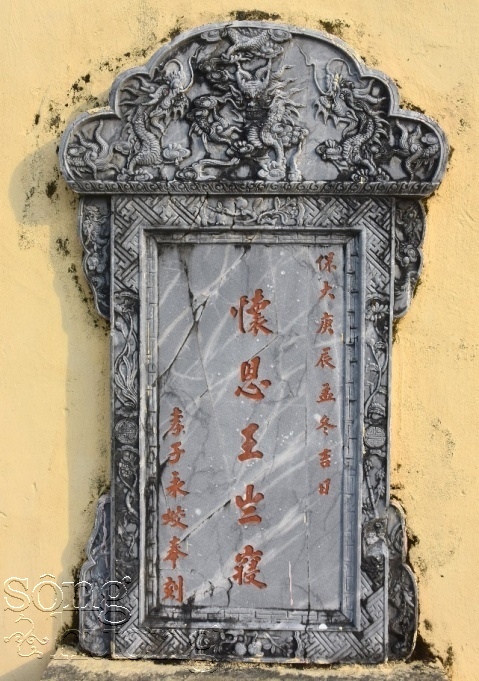 保大庚辰孟冬吉日
懷恩王之寢
孝子永 奉刻
sông